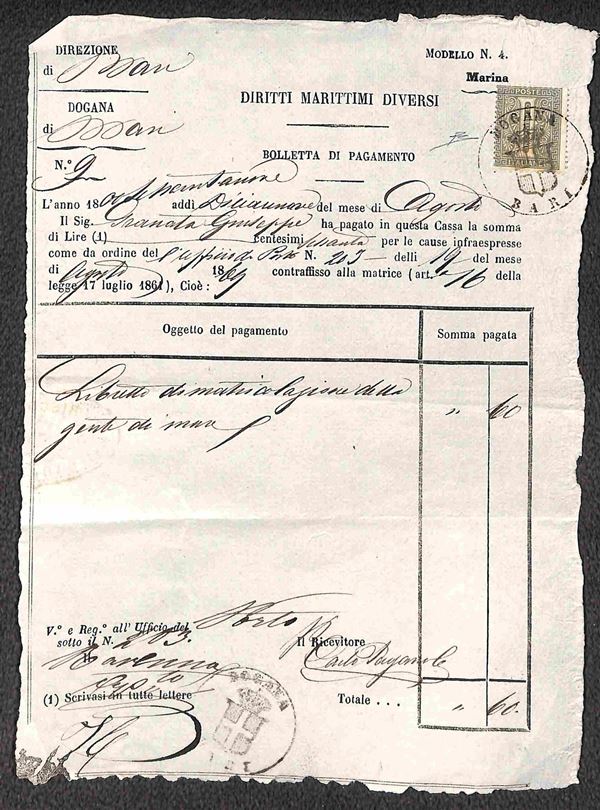 DIREZIONE
di Bari
DOGANA
di Bari
MODELLO N. 4.
Marina
POSTE
DOGANA
BARI
DIRITTI MARITTIMI DIVERSI
BOLLETTA DI PAGAMENTO
N.° 9
L'anno 18 addì Diciannove del mese di Agosto
Il Sig. Giuseppe ha pagato in questa Cassa la somma
di Lire (1) centesimi sessanta per le cause infraespresse
come da ordine del l'ufficio di Porto N. 203 delli 19 del mese
di Agosto 1869 contraffisso alla matrice (art. 16 della
legge 17 luglio 1861), Cioè :
Oggetto del pagamento
Somma pagata
Libretto di matricolazione della „ 60
gente di mare
V.° e Reg.° all' Ufficio del Porto
sotto il N. 203.
li
Il Ricevitore
Carlo
(1) Scrivasi in tutte lettere
Totale . . . „ 60.
DOGANA